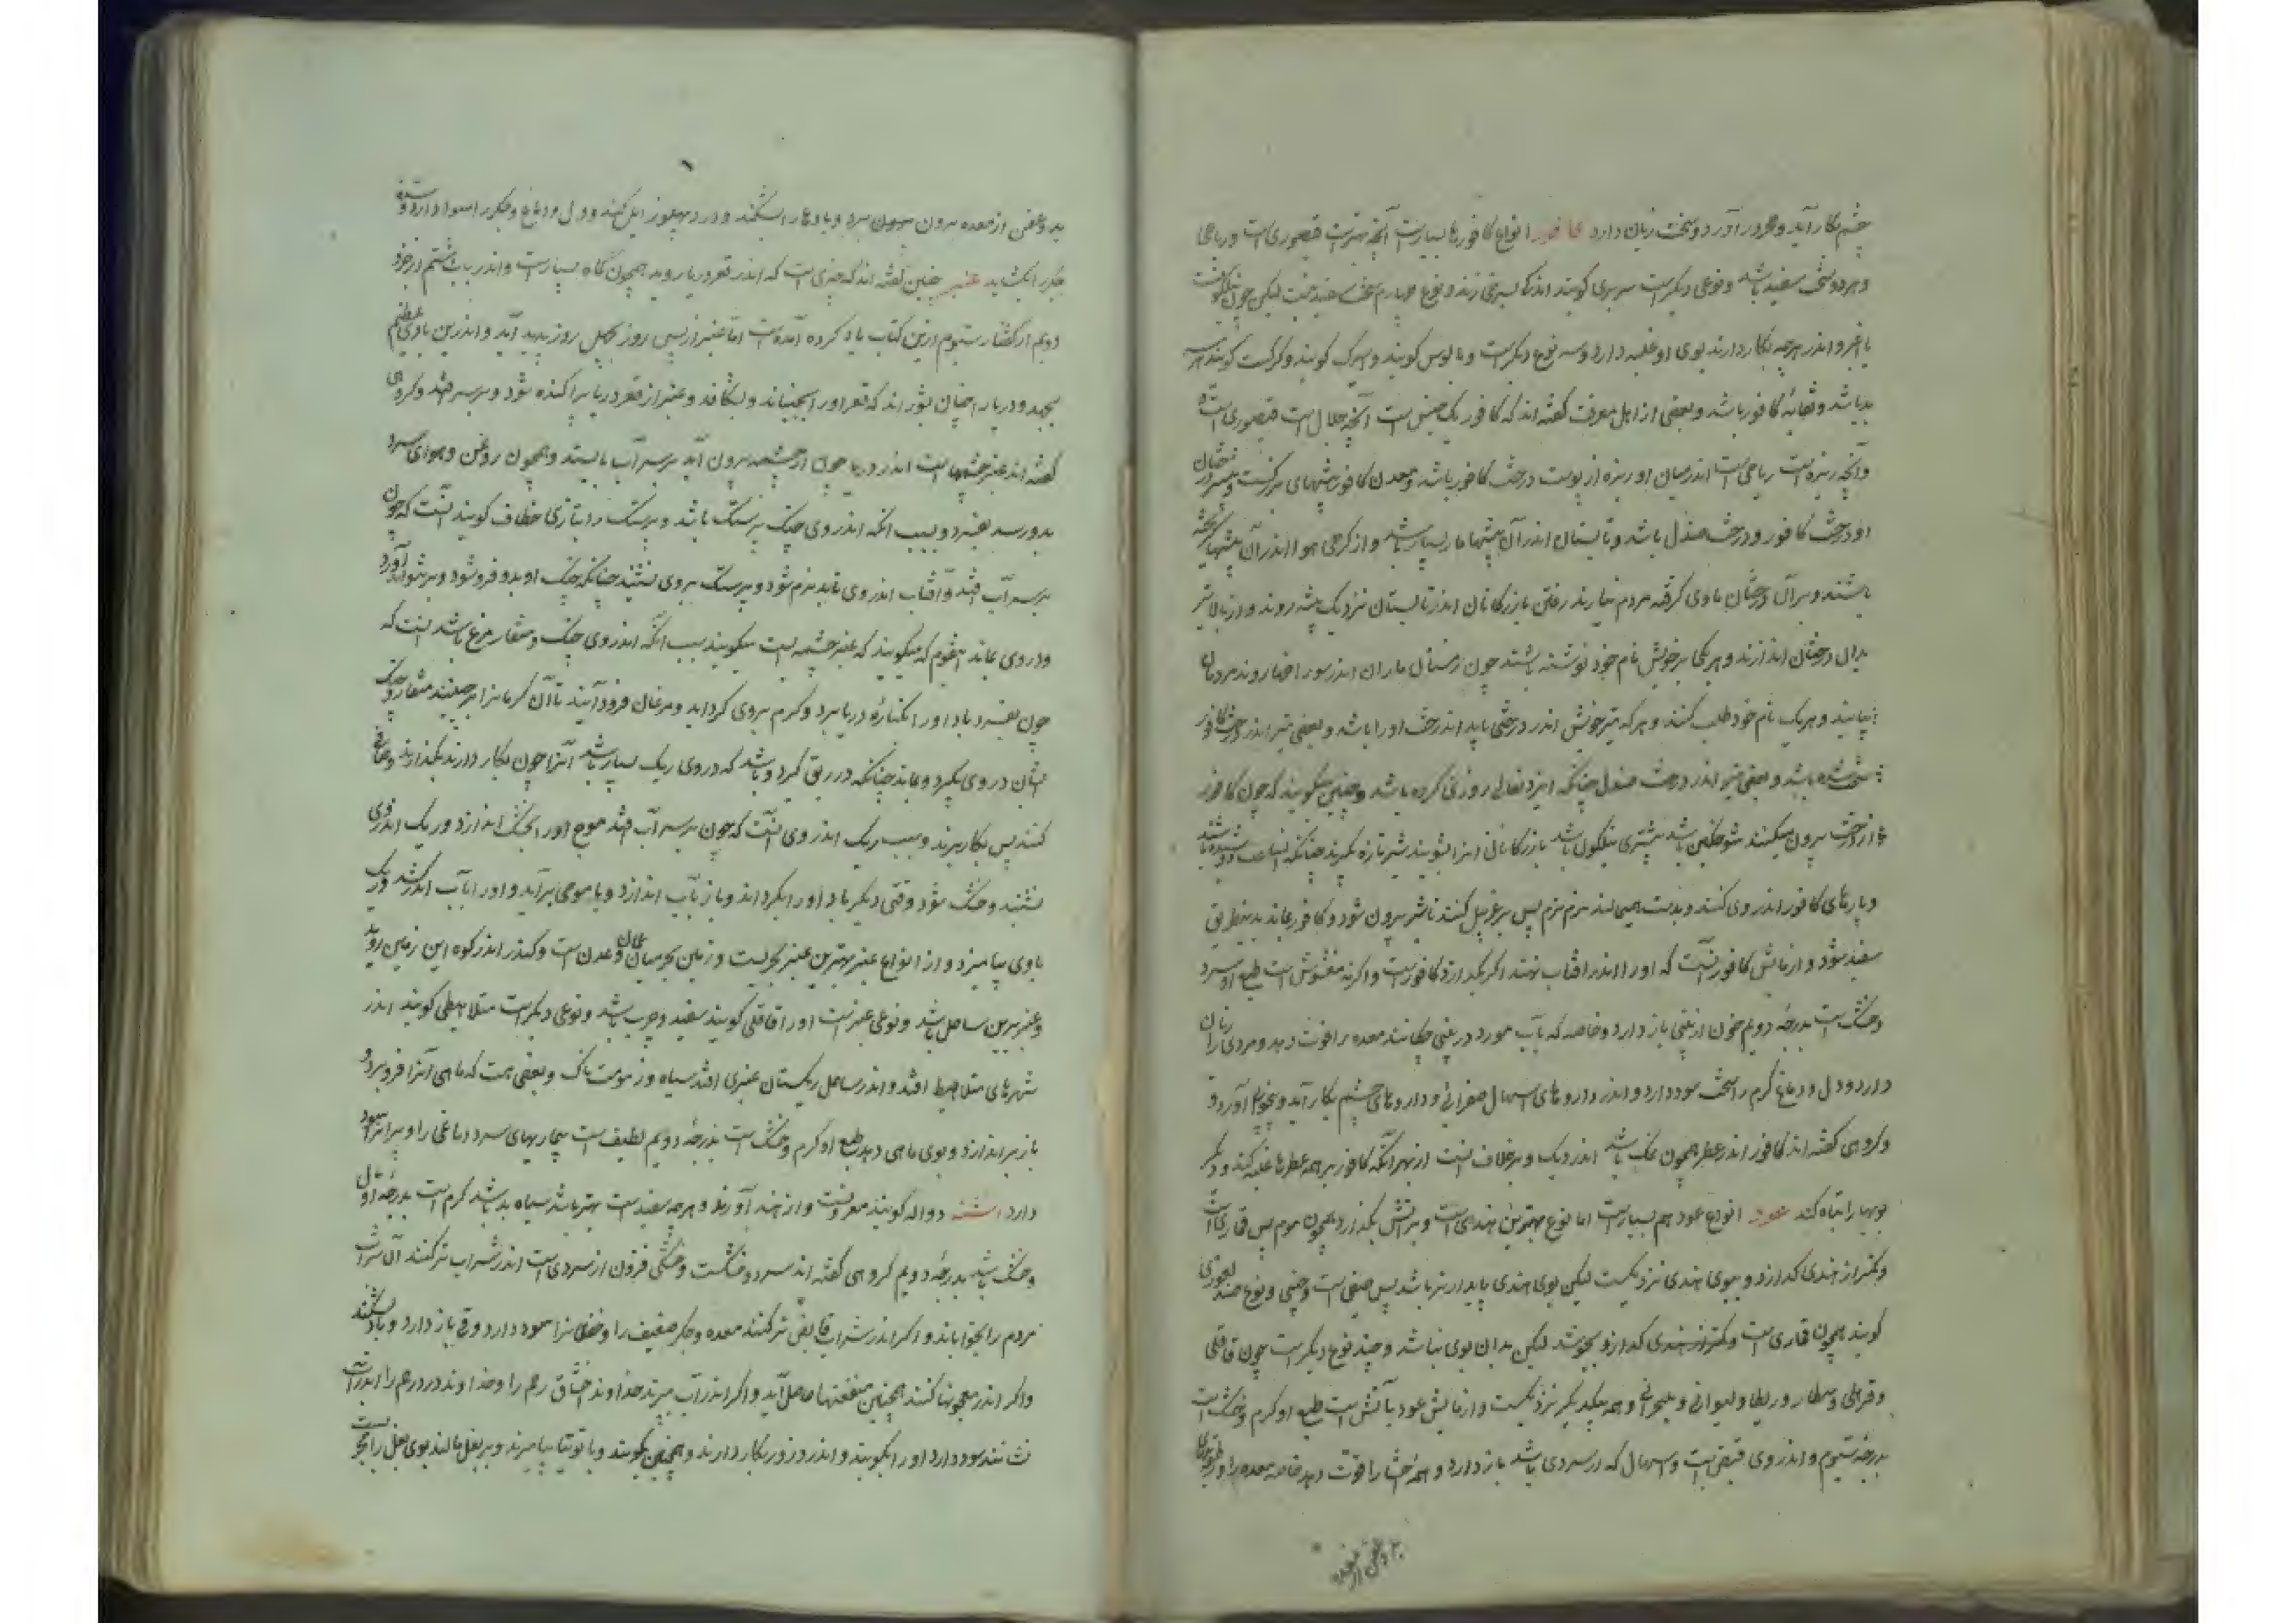 چشم بکار آید و خرد را آورد و سخت زیان دارد کافور انواع کافورها بسیارست آنچه بهترست قیصوری است و رباحی
و هر دو سخت سفید باشد و نوعی دیگرست سربری کویند اندکی بسرخی زند و نوع چهارم سخت سفید نیست لیکن چون
و اندر هرچه بکار دارند بوی او غلبه دارد و سه نوع دیگرست و بالوس کویند و کویند و کرکت کویند هر سه
بد باشد و ثقایۀ کافور باشد و بعضی از اهل معرفت کفته اند که کافور یک جنس است آنچه جلال است قیصوری است
و آنچه ریزه است رباحی است اندر میان او ریزه از پوست درخت کافور باشد و معدن کافور بیشهای بزرکست و درختان
او درخت کافور و درخت صندل باشد و تابستان اندر آن بیشها مار بسیار باشد و از کرمی هوا اندر آن بیشها
باشند و بر آن درختان مأوی کرفته مردم نیارند رفتن بازرکانان اندر تابستان نزدیک بیشه روند و از بالا تیر
بدان درختان اندازند و هر یکی بر تیر خویش نام خود نوشته باشند چون زمستان ماران اندر سوراخها روند مردمان
بیایند و هر یک نام خود طلب کنند و هر که تیر خویش اندر درختی یابد آن درخت او را باشد و بعضی تیر اندر درخت کافور
سخت شده باشد و بعضی تیر اندر درخت صندل چنانکه ایزد تعالی روزی کرده باشد و چنین میکویند که چون کافور
از درخت بیرون میکنند شوخکین باشد بازرکانان انرا بشویند شیر تازه بکیرند چنانکه انساعت دوشیده باشند
و پارهای کافور اندر وی کنند و بدست همی مالند نرم نرم پس بر غربیل کنند تا شیر بیرون شود و کافور بماند بدین طریق
سفید شود و ازمایش کافور آنست که او را اندر افتاب نهند اکر بکدازد کافورست و اکرنه مغشوش است طبع او سرد
و خشک است بدرجۀ دویم خون از بینی باز دارد و خاصه که بآب مورد در بینی چکانند معده را قوت دهد و مردی را زیان
دارد و دل و دماغ کرم را سخت سود دارد و اندر داروهای اسهال صفرائی و داروهای چشم بکار آید و بیخوابی آورد و
و کروهی کفته اند کافور اندر عطر همچون نمک باشد اندر دیک و برخلاف اینست از بهر آنکه کافور بر همه عطرها غلبه کند و دیکر
بویها را تباه کند عود انواع عود هم بسیارست اما نوع بهترین هندی است و بر آتش بکدازد همچون موم پس قماری است
و کمتر از هندی کدازد و ببوی هندی نزدیکست لیکن بوی هندی پایدارتر باشد پس صنفی است و چینی و نوع
کویند همچون قماری است و کمتر از هندی کدازد و بجوشد لیکن بدان بوی نباشد و چند نوع دیکرست چون قاقلی
و همه بیکدیکر نزدیکست و ازمایش عود بآتش است طبع او کرم و خشک است
بدرجۀ سیوم و اندر وی قبضی است و اسهال که از سردی باشد باز دارد و همۀ احشا را قوت دهد خاصه معده را و رطوبتهای
بد و عفن از معده
بد و عفن از معده بیرون برد و بادها را بشکند و درد پهلو زایل کند و دل و دماغ و جکر را سود دارد و سدۀ
جکر را بکشاید عنبر چنین کفته اند که چیزی است که اندر قعر دریا روید همچون کاه بسیارست و اندر باب ششم از جزو
دویم از کفتار سیوم ازین کتاب یاد کرده آمده است اما عنبر از پس روز چهل روز پدید آید و اندرین بادی عظیم
بجهد و دریا را چنان بشوراند که قعر او را بجنباند و بشکافد و عنبر از قعر دریا پراکنده شود و بر سر افتد و کروهی
کفته اند عنبر چشمها است اندر دریا چون از چشمه بیرون آید بر سر آب بایستد و همچون روغن و هوای سرد
بدو رسد بفسرد و سبب انکه اندر وی چنک پرستک باشد و پرستک را بتازی خطاف کویند آنست که چون
بر سر آب افتد و آفتاب اندر وی تابد نرم شود و پرستک بر وی نشیند چنانکه چنک او بدو فرو شود و بر نتواند آورد
و در وی بماند آن قوم که میکویند که عنبر چشمه است میکویند سبب آنکه اندر وی چنک و منقار مرغ باشد اینست که
چون بفسرد باد او را بکنارۀ دریا برد و کرم بر وی کرد آید و مرغان فرود آیند تا آن کرمانرا برچینند منقار و چنک
ایشان در وی بکیرد و بماند چنانکه در ریق کیرد و باشد که در وی ریک بسیار باشد آنرا چون بکار دارند بکدازند و صافی
کنند پس بکار برند و سبب ریک اندر وی آنست که چون بر سر آب افتد موج او را بخشک اندازد و ریک اندر وی
نشیند و خشک شود وقتی دیکر باد او را بکرداند و باز بآب اندازد و با موج برآید و او را بآب اندر کشد و ریک
با وی بیامیزد و از انواع عنبر بهترین عنبر بحریست و زمین بحر میان عمان و عدن است و کندر اندر کوه این زمین روید
و عنبر برین ساحل باشد و نوعی عنبرست او را قاقلی کویند سفید و چرب باشد و نوعی دیکرست کویند اندر
شهرهای افتد و اندر ساحل ریکستان عنبری افتد سیاه و زموست ناک و بعضی هست که ماهی آنرا فرو برد و
باز براندازد و بوی ماهی دهد طبع او کرم و خشک است بدرجۀ دویم لطیف است بیماریهای سرد دماغی را و پیرانرا سود
دارد اشنه دواله کویند معروفست و از هند آورند و هرچه سفیدست بهتر باشد سیاه بد باشد کرم است بدرجۀ اول
و خشک باشد بدرجۀ دویم کروهی کفته اند سرد و خشکست و خشکی فزون از سردی است اندر شراب تر کنند آن شراب
مردم را بخواباند و اکر اندر شراب قابض تر کنند معده و جکر ضعیف را و خفقانرا سود دارد و قی باز دارد و باد بشکند
و اکر اندر معجونها کنند همچنین منفعتها حاصل آید و اکر اندر آب بپزند خداوند اختناق رحم را و خداوند درد رحم را اندر آب
نشانند سود دارد او را بکوبند و اندر ذرور بکار دارند و همچنین بکوبند و با توتیا بیامیزند و بر بغل مالند بوی بغل را